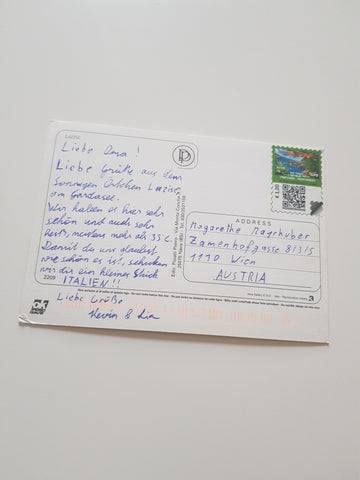 LAZISE
Liebe Oma!
Liebe Grüße aus dem
sonnigen Örtchen Lazise
am Gardasee.
Wir haben es hier sehr
schön und auch sehr
heiß, meistens mehr als 33 C.
Damit du uns glaubst
wie schön es ist, schicken
wir dir ein kleines Stück
ITALIEN!!
Liebe Grüße
Kevin & Lia
2209
€ 1,20
ADDRESS
Margarethe Mayrhuber
Zamenhofgasse 8/3/5
1110 Wien
AUSTRIA